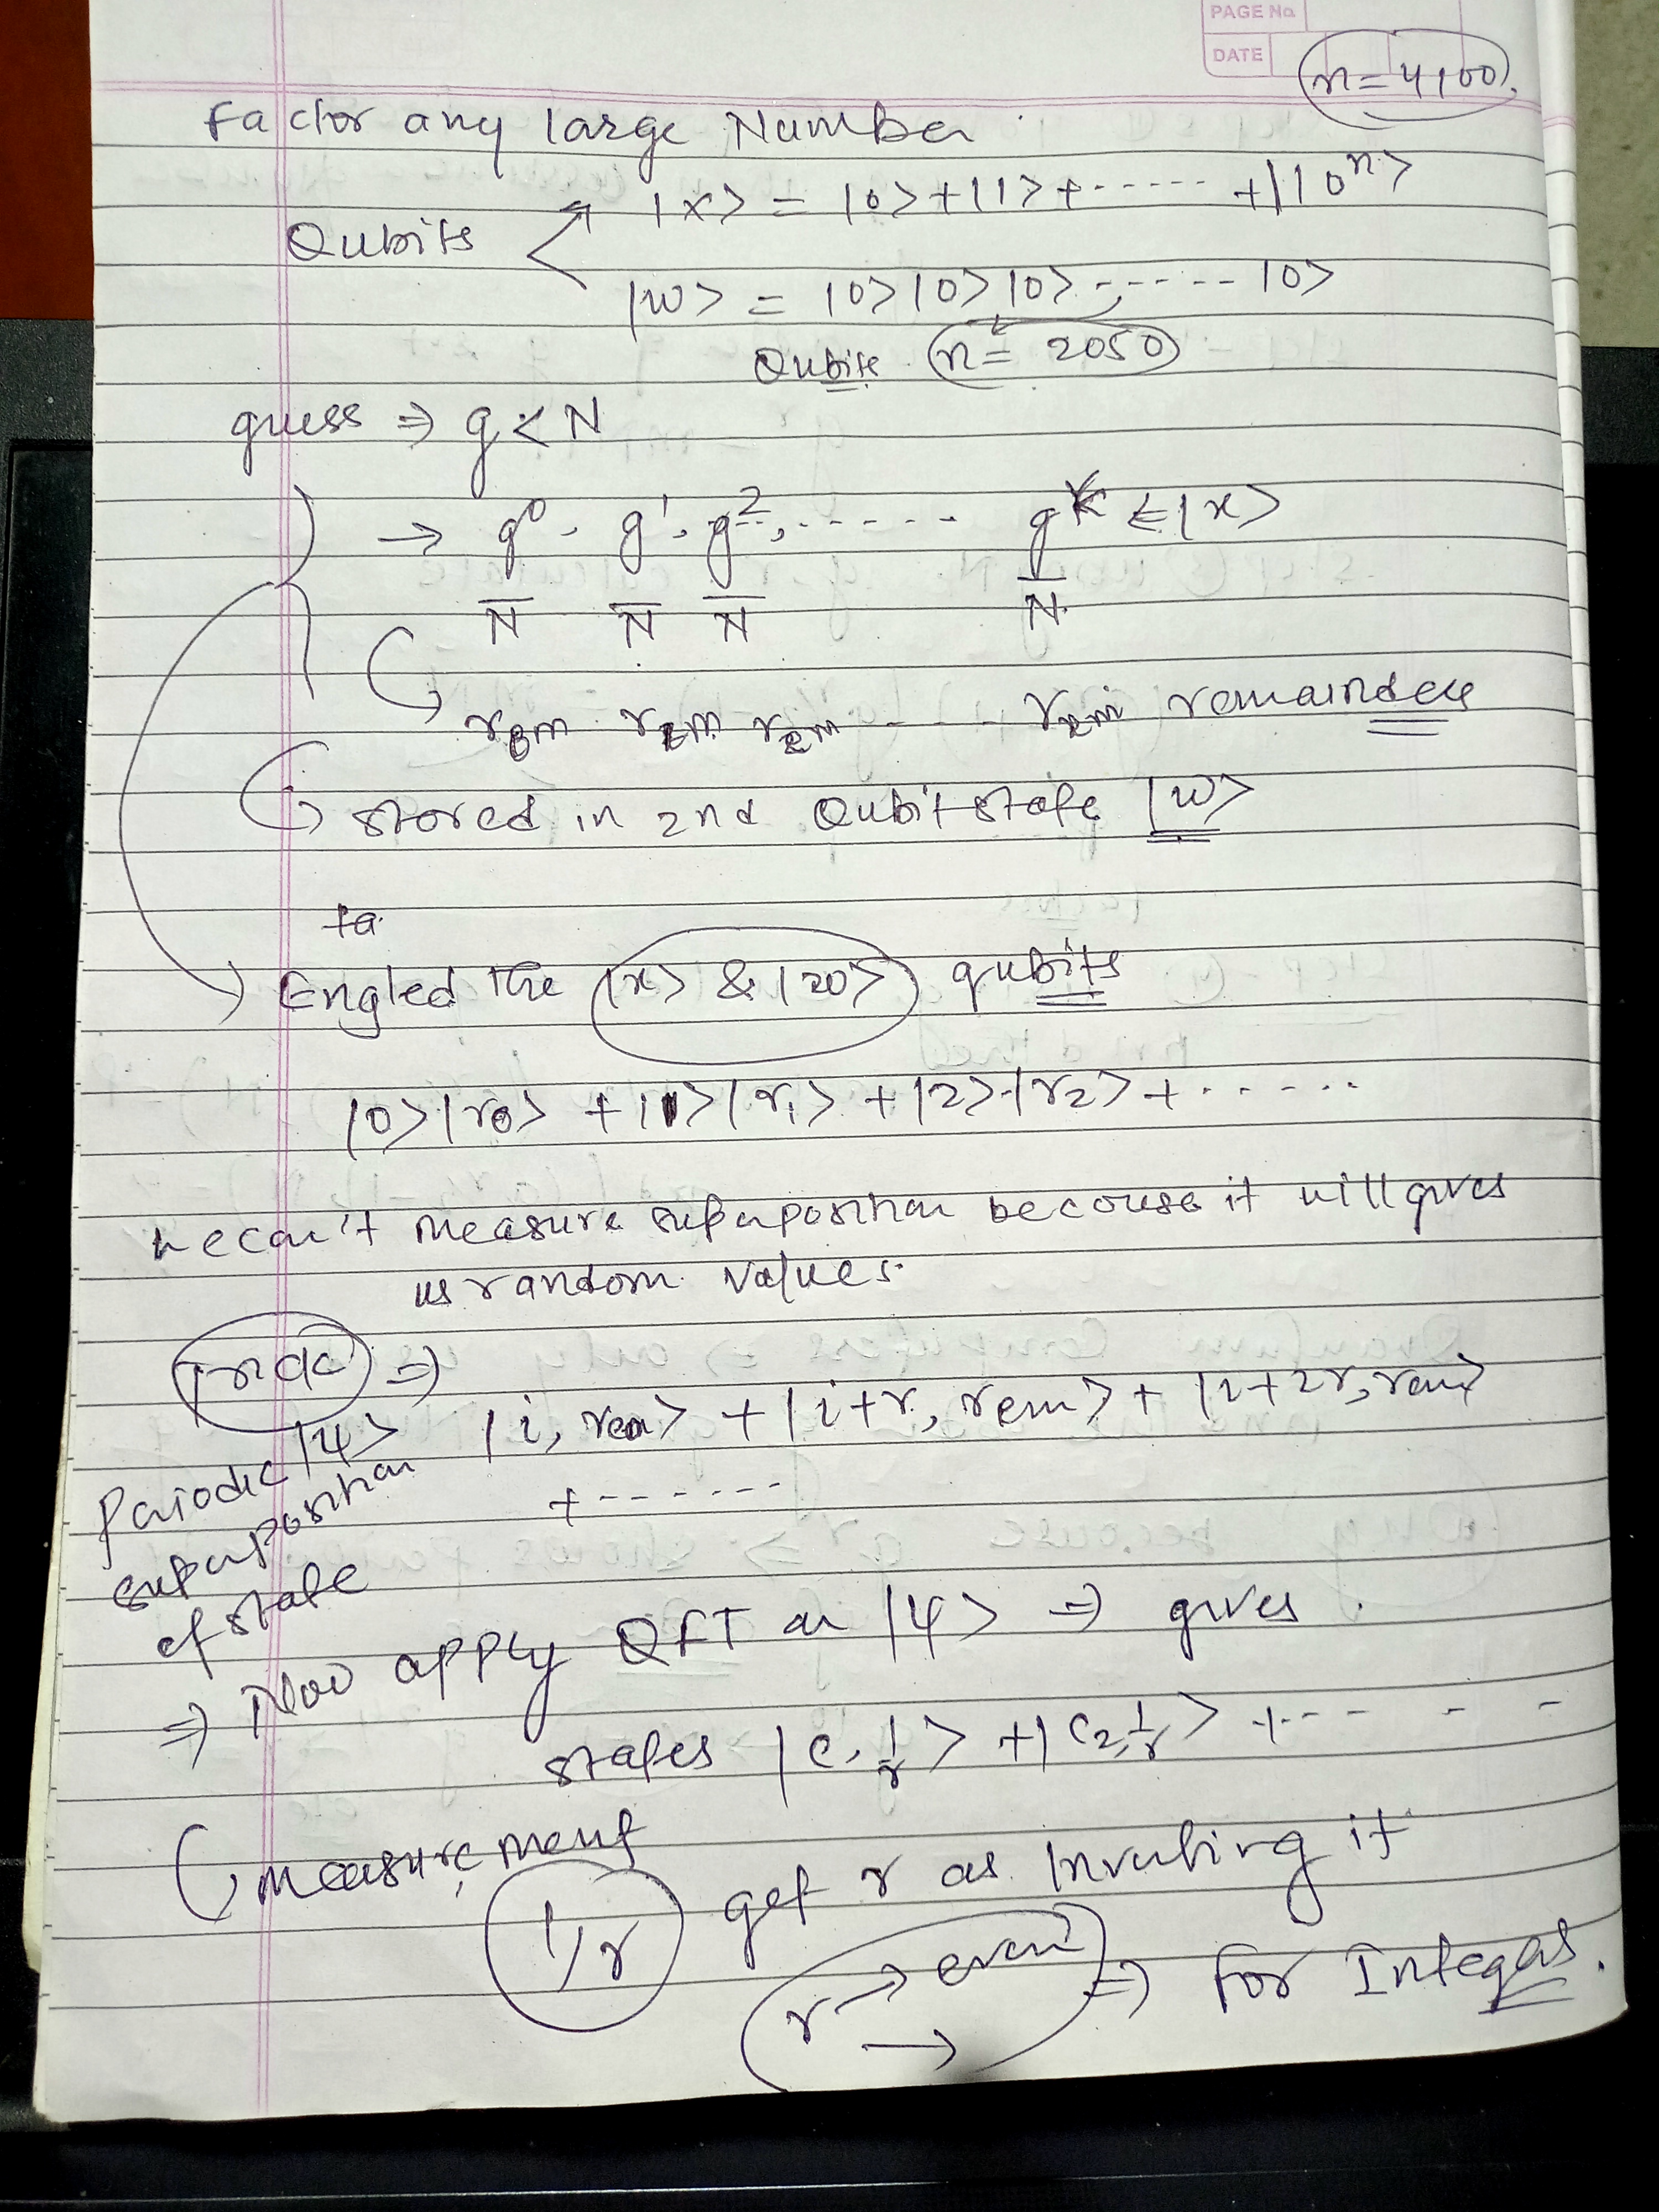 PAGE No.
DATE
n = 4100
Factor any large Number.
|x> = |0> + |1> + ------ + |10ⁿ>
Qubits
|w> = |0>|0>|0> ------ |0>
Qubits n = 2050
guess ⇒ g < N
→ g⁰, g¹, g², ------ gᵏ ∈ |x>
N N N N
r₀m r₁m r₂m - - - remainders
stored in 2nd Qubit state |w>
ta
Engled the |x> & |w> qubits
|0>|r₀> + |1>|r₁> + |2>|r₂> + ------
we can't measure superposition because it will gives
us random values.
Trick ⇒
|ψ> |i, rem> + |i+r, rem> + |i+2r, rem>
+ -------
Periodic
superposition
of state
⇒ Now apply QFT on |ψ> ⇒ gives
states |c, 1/r> + |c₂, 1/r> + --- - -
measurement
1/r get r as Inverting it
r → even ⇒ for Integers.
→